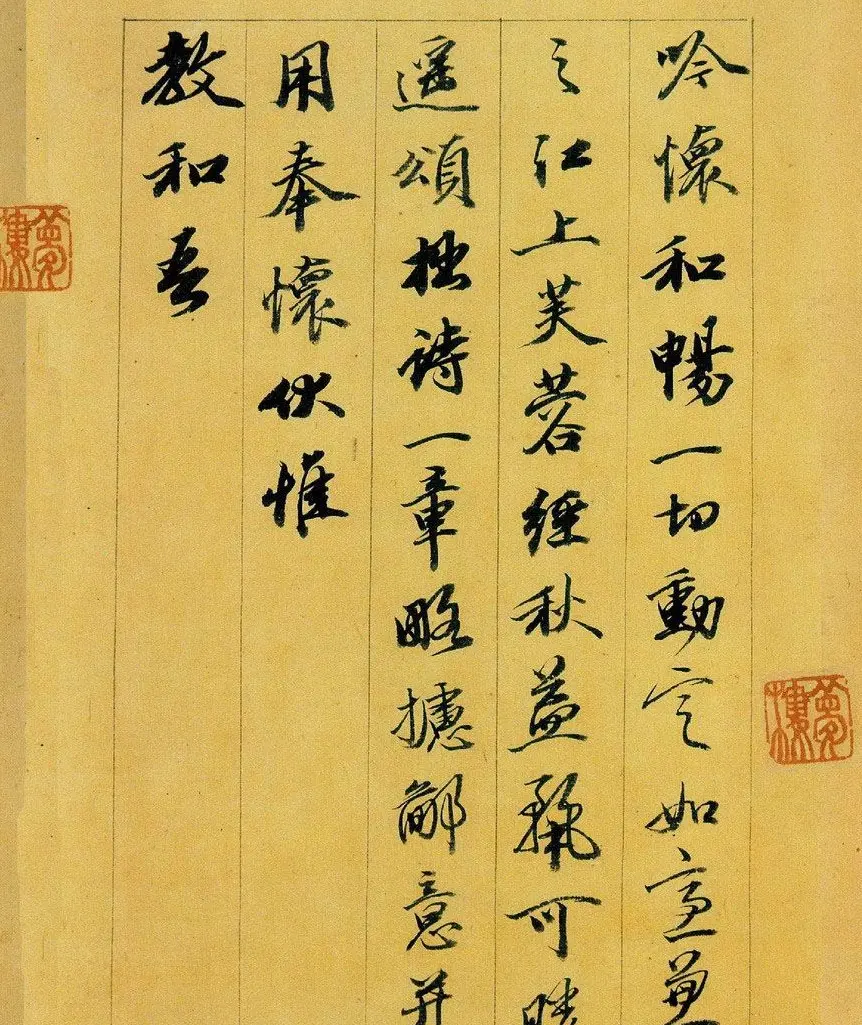 吟懷和暢一切動定如
之江上芙蓉經秋益可
遥頌拙詩一章略攄鄙意并
用奉懷伏惟
教和吾
夢樓
夢樓